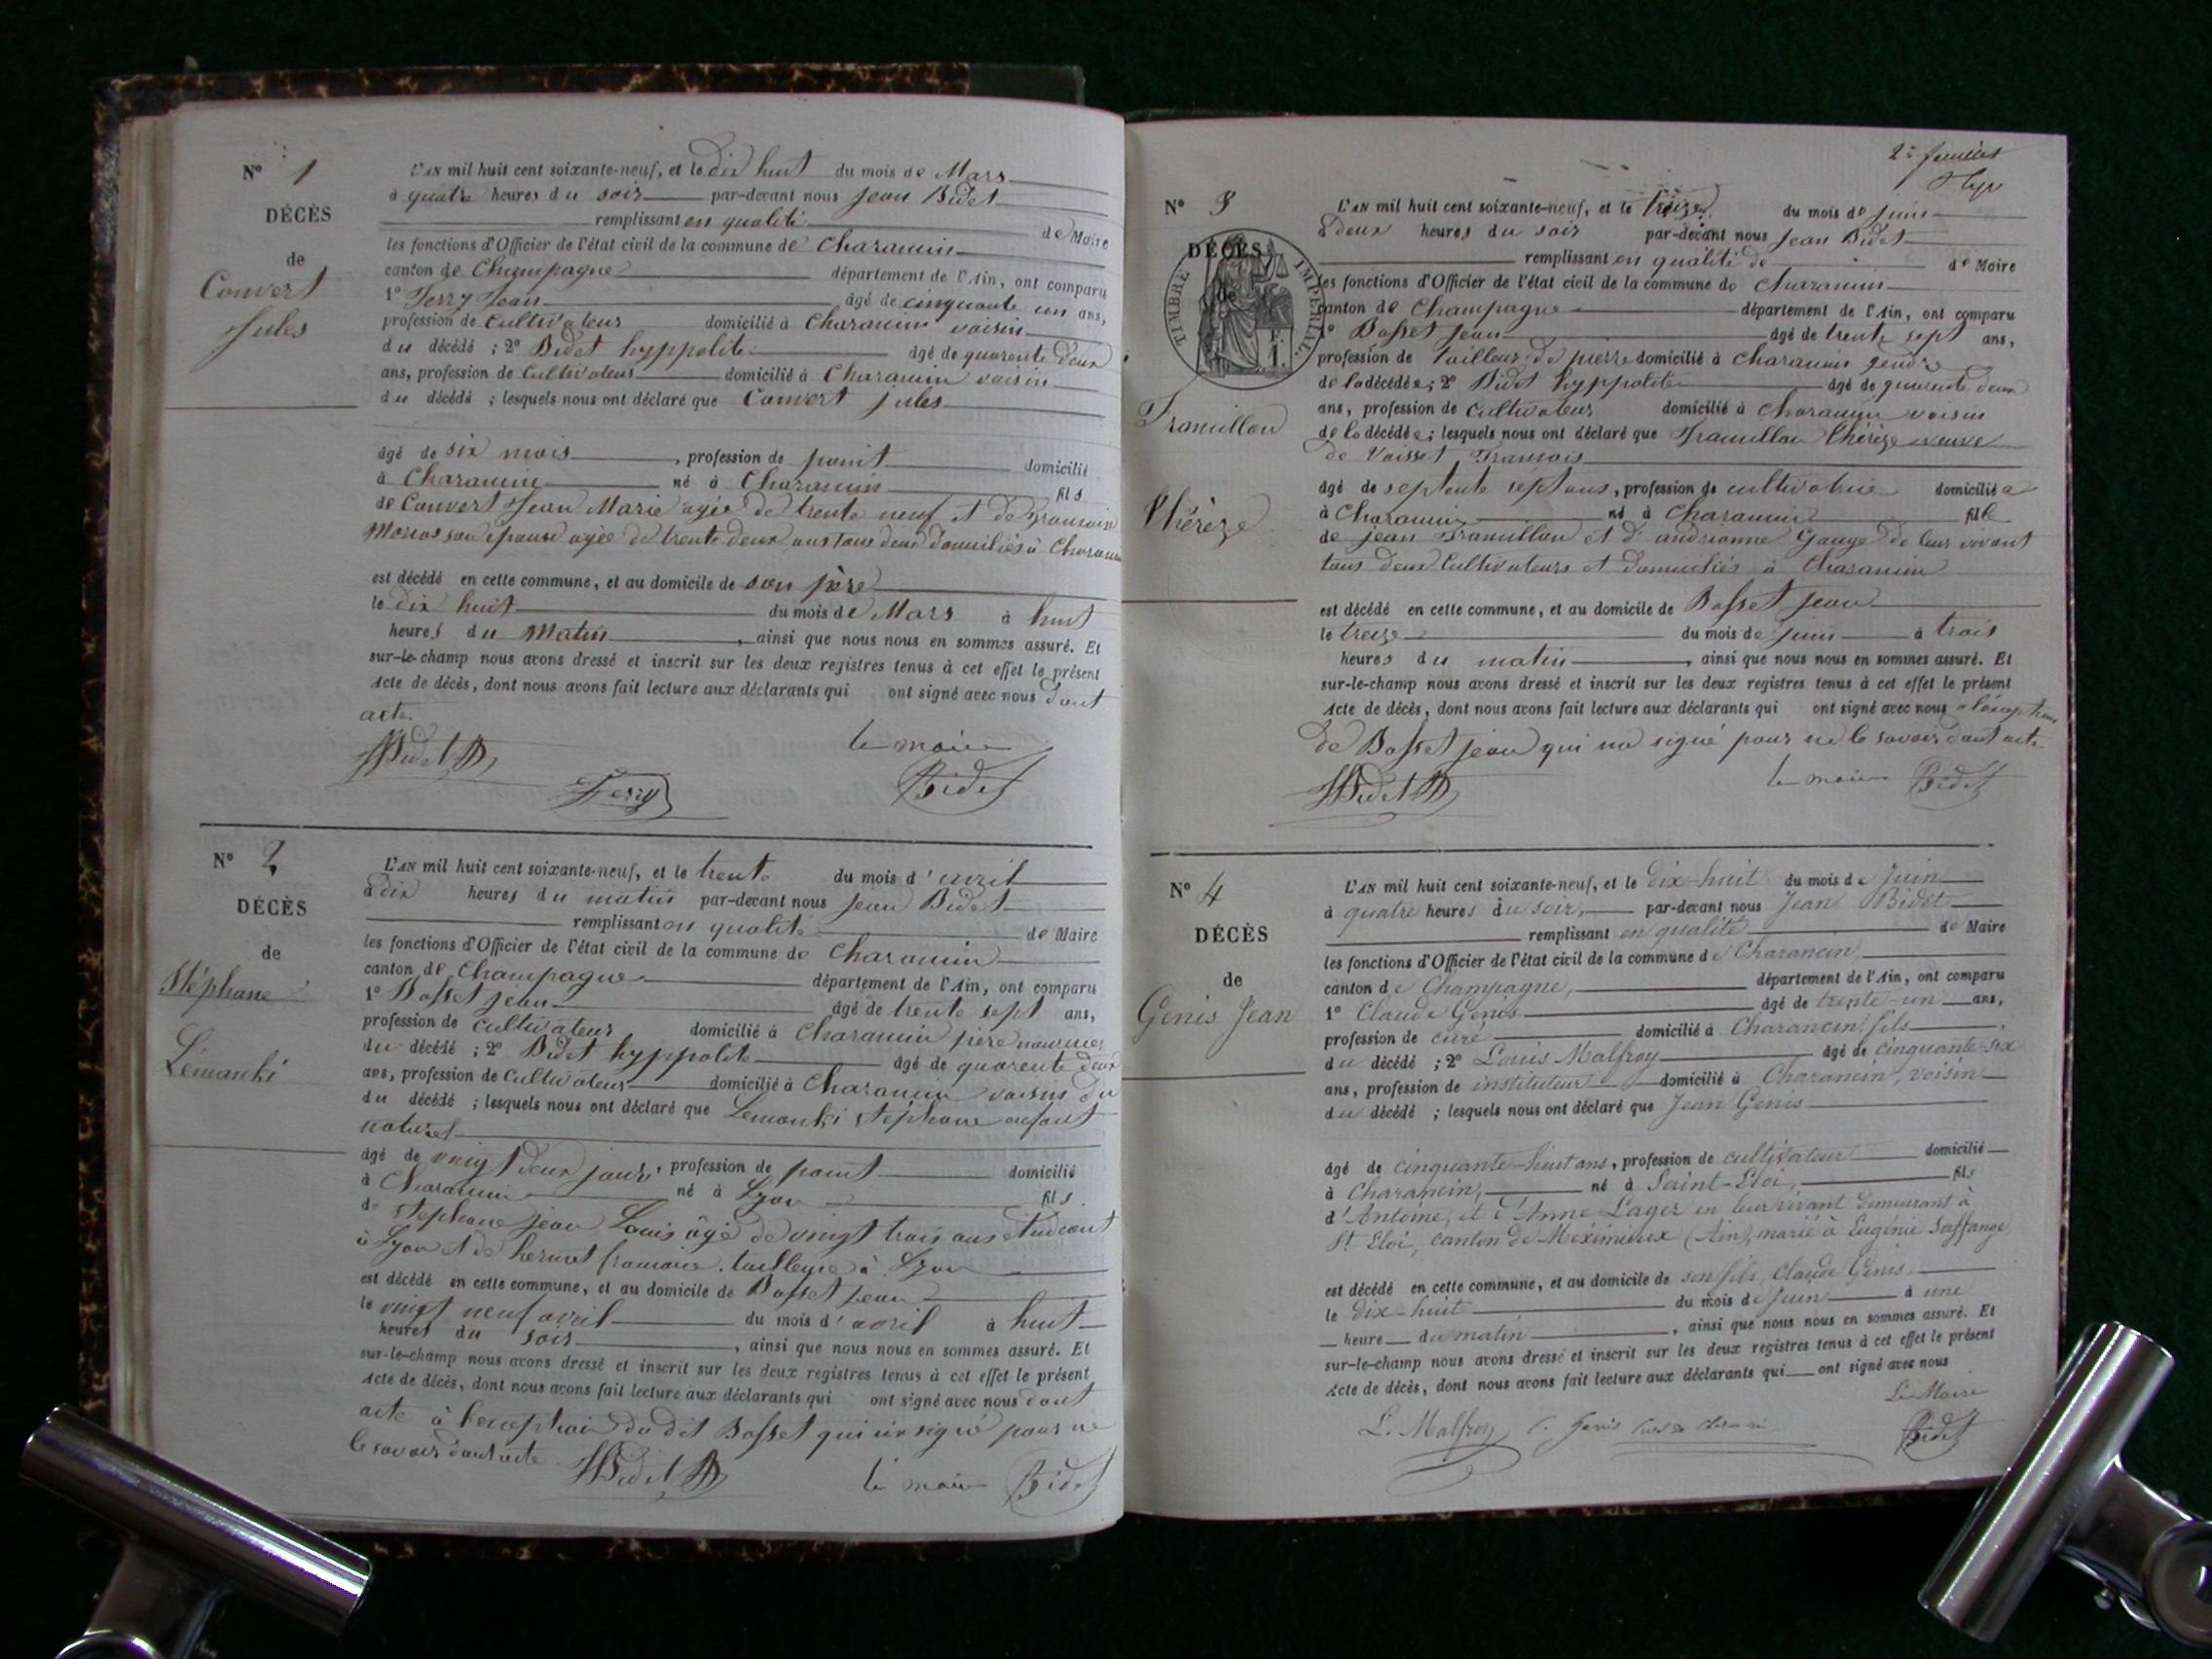 N° 1
DÉCÈS
de
Convert
Jules
L'AN mil huit cent soixante-neuf, et le dix huit du mois de Mars
à quatre heures du soir par-devant nous Jean Bidet
remplissant en qualité de Maire
les fonctions d'Officier de l'état civil de la commune de Charancin
canton de Champagne département de l'Ain, ont comparu
1° Ferry Jean âgé de cinquante un ans,
profession de cultivateur domicilié à Charancin voisin
du décédé ; 2° Bidet hyppolite âgé de quarente deux
ans, profession de Cultivateur domicilié à Charancin voisin
du décédé ; lesquels nous ont déclaré que Convert Jules
âgé de six mois, profession de point domicilié
à Charancin né à Charancin fils
de Convert Jean Marie agée de trente neuf et de
son épouse agée de trente deux ans tous deux domiciliés à Charancin
est décédé en cette commune, et au domicile de son père
le dix huit du mois de Mars à huit
heures du Matin, ainsi que nous nous en sommes assuré. Et
sur-le-champ nous avons dressé et inscrit sur les deux registres tenus à cet effet le présent
Acte de décès, dont nous avons fait lecture aux déclarants qui ont signé avec nous dont
acte.
le maire
HBidet Ferry Bidet
N° 2
DÉCÈS
de
Stéphane
Lémanki
L'AN mil huit cent soixante-neuf, et le trente du mois d'avril
à dix heures du matin par-devant nous Jean Bidet
remplissant en qualité de Maire
les fonctions d'Officier de l'état civil de la commune de Charancin
canton de Champagne département de l'Ain, ont comparu
1° Bosset jean âgé de trente sept ans,
profession de cultivateur domicilié à Charancin père nourricier
du décédé ; 2° Bidet hyppolite âgé de quarente deux
ans, profession de Cultivateur domicilié à Charancin voisin du
du décédé ; lesquels nous ont déclaré que Lemanki stéphane enfant
naturel
âgé de vingt deux jours, profession de point domicilié
à Charancin né à Lyon fils
de stephane jean Louis âgé de vingt trois ans étudiant
à Lyon et de françoise tailleuse à Lyon
est décédé en cette commune, et au domicile de Bosset jean
le vingt neuf avril du mois d'avril à huit
heures du soir, ainsi que nous nous en sommes assuré. Et
sur-le-champ nous avons dressé et inscrit sur les deux registres tenus à cet effet le présent
Acte de décès, dont nous avons fait lecture aux déclarants qui ont signé avec nous dont
acte à l'exception du dit Bosset qui na signé pour ne
le savoir dont acte
HBidet le maire Bidet
2e feuillet
N° 3
DÉCÈS
de
TIMBRE IMPÉRIAL
1 F.
Tramillon
Thérèze
L'AN mil huit cent soixante-neuf, et le treize du mois de juin
à deux heures du soir par-devant nous Jean Bidet
remplissant en qualité de de Maire
les fonctions d'Officier de l'état civil de la commune de Charancin
canton de Champagne département de l'Ain, ont comparu
1° Bosset jean âgé de trente sept ans,
profession de tailleur de pierre domicilié à Charancin gendre
de la décédée ; 2° Bidet hyppolite âgé de quarente deux
ans, profession de Cultivateur domicilié à Charancin voisin
de la décédée ; lesquels nous ont déclaré que Tramillon thérèze veuve
de Voisset François
âgé de septente sept ans, profession de cultivatrice domiciliée
à Charancin né à Charancin fille
de jean Tramillon et d'andrianne Gauge de leur vivant
tous deux Cultivateurs et domiciliés à Charancin
est décédé en cette commune, et au domicile de Bosset jean
le treize du mois de juin à trois
heures du matin, ainsi que nous nous en sommes assuré. Et
sur-le-champ nous avons dressé et inscrit sur les deux registres tenus à cet effet le présent
Acte de décès, dont nous avons fait lecture aux déclarants qui ont signé avec nous a l'éxception
de Bosset jean qui na signé pour ne le savoir dont acte.
HBidet le maire Bidet
N° 4
DÉCÈS
de
Genis Jean
L'AN mil huit cent soixante-neuf, et le dix-huit du mois de Juin
à quatre heures du soir, par-devant nous Jean Bidet
remplissant en qualité de Maire
les fonctions d'Officier de l'état civil de la commune de Charancin
canton de Champagne, département de l'Ain, ont comparu
1° Claude Genis âgé de trente-un ans,
profession de curé domicilié à Charancin, fils
du décédé ; 2° Louis Malfroy âgé de cinquante-six
ans, profession de instituteur domicilié à Charancin, voisin
du décédé ; lesquels nous ont déclaré que Jean Genis
âgé de cinquante-huit ans, profession de cultivateur domicilié
à Charancin, né à Saint-Eloi, fils
d'Antoine, et d'Anne Lager en leur vivant demeurant à
St Eloi, canton de Méximieux (Ain), marié à Eugénie Saffange
est décédé en cette commune, et au domicile de son fils, Claude Genis
le dix-huit du mois de Juin à une
heure du matin, ainsi que nous nous en sommes assuré. Et
sur-le-champ nous avons dressé et inscrit sur les deux registres tenus à cet effet le présent
Acte de décès, dont nous avons fait lecture aux déclarants qui ont signé avec nous
Le Maire
L. Malfroy C. Genis Bidet